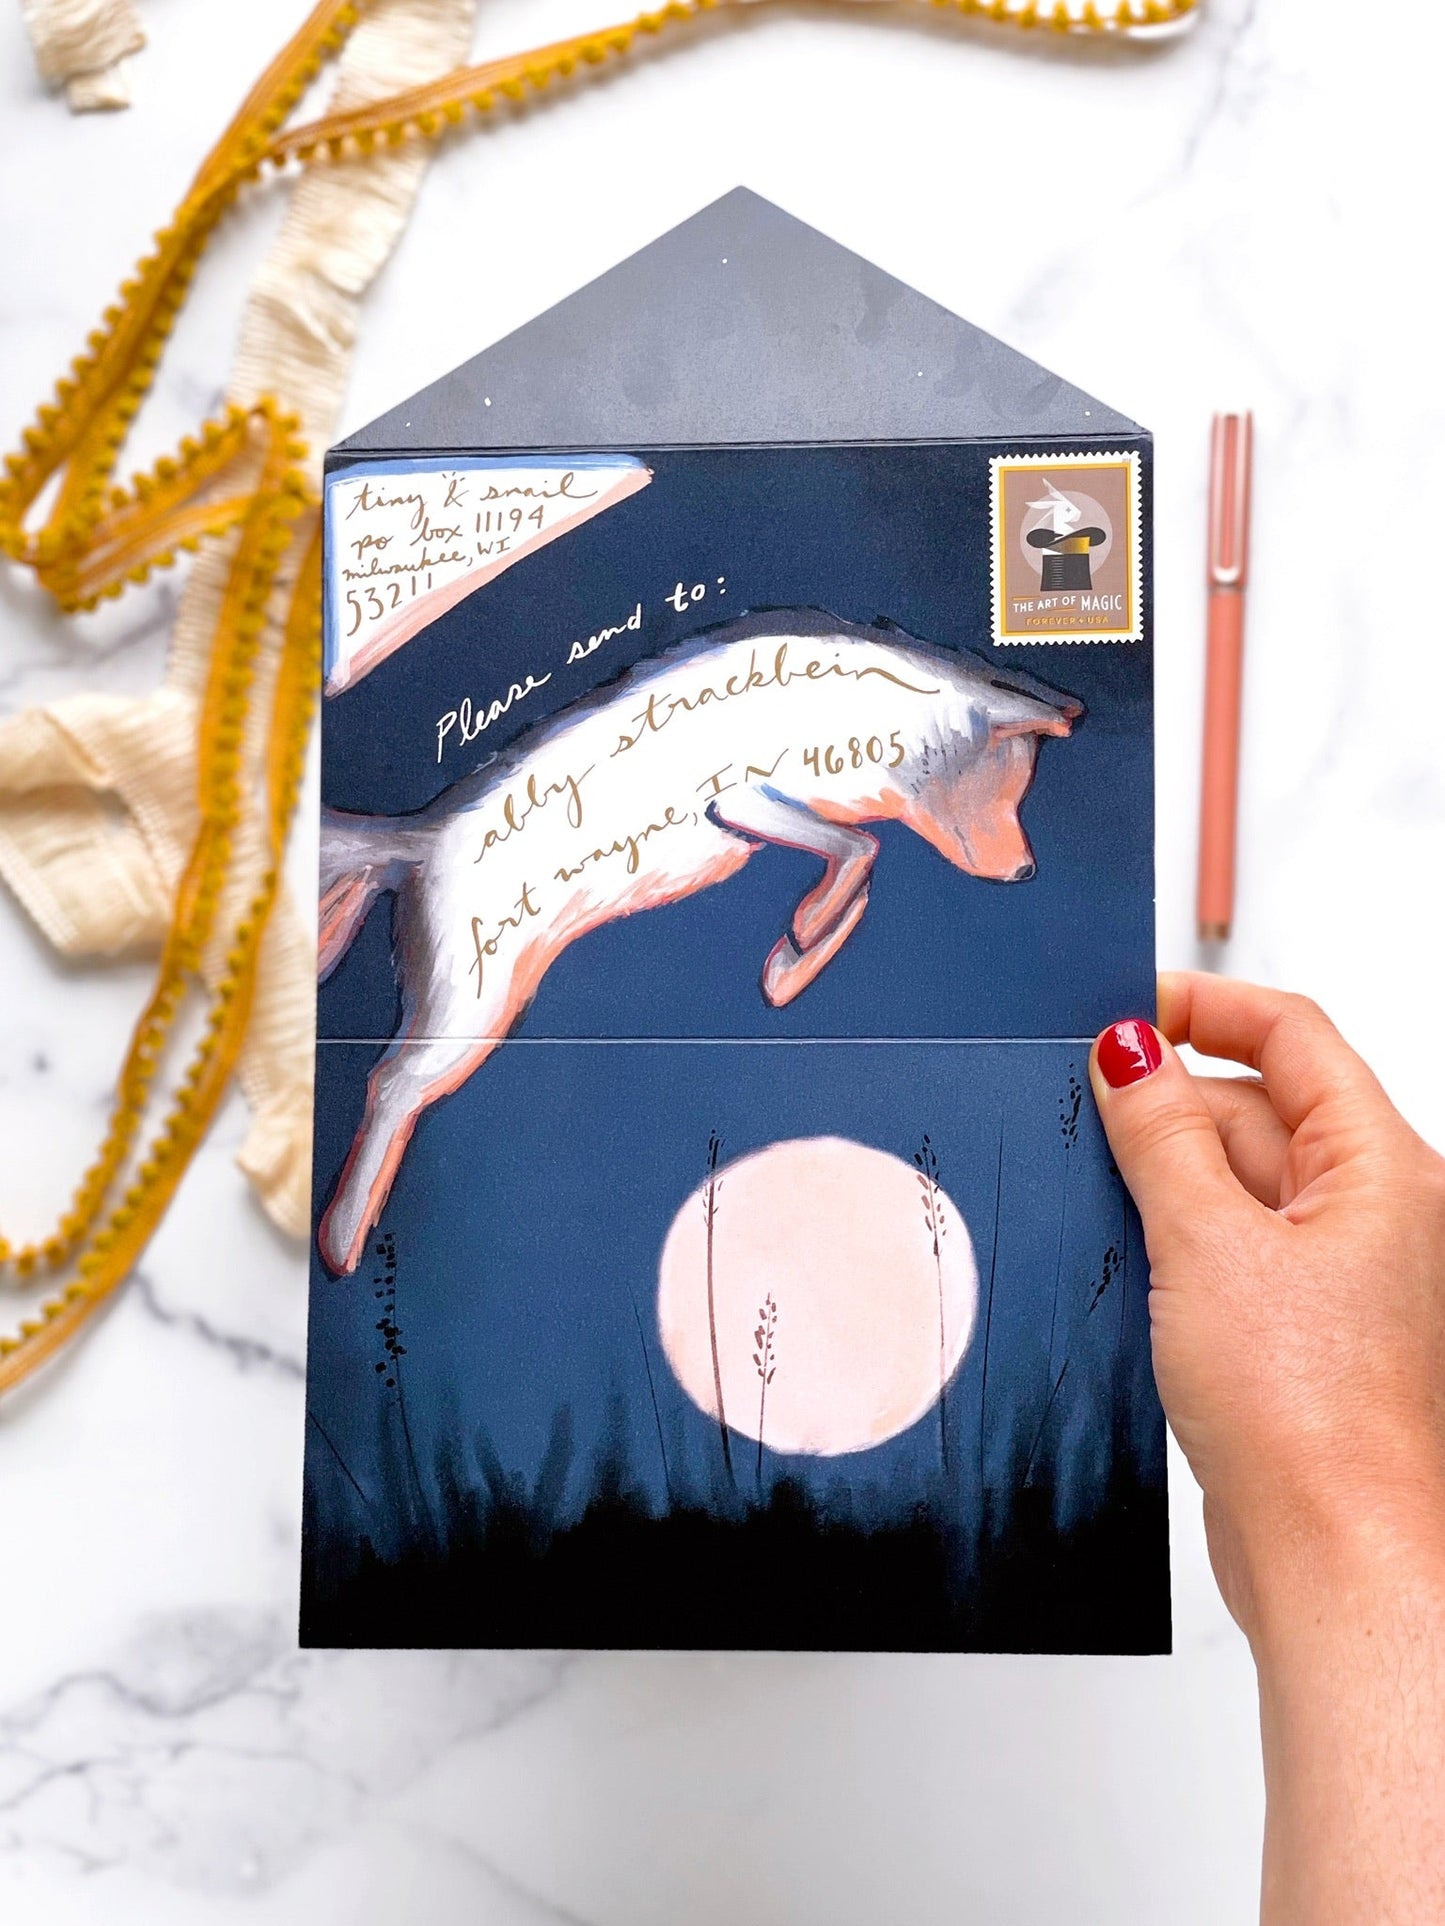 tiny & snail
po box 11194
milwaukee, WI
53211
THE ART OF MAGIC
FOREVER • USA
Please send to:
abby strackbein
fort wayne, IN 46805